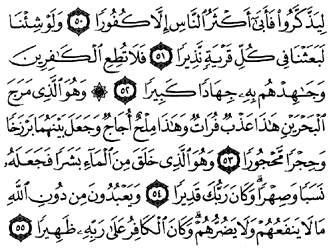 لِيَذَّكَّرُوا۟ فَأَبَىٰٓ أَكْثَرُ ٱلنَّاسِ إِلَّا كُفُورًا ٥٠ وَلَوْ شِئْنَا
لَبَعَثْنَا فِى كُلِّ قَرْيَةٍ نَّذِيرًا ٥١ فَلَا تُطِعِ ٱلْكَـٰفِرِينَ
وَجَـٰهِدْهُم بِهِۦ جِهَادًا كَبِيرًا ٥٢ ۞ وَهُوَ ٱلَّذِى مَرَجَ
ٱلْبَحْرَيْنِ هَـٰذَا عَذْبٌ فُرَاتٌ وَهَـٰذَا مِلْحٌ أُجَاجٌ وَجَعَلَ بَيْنَهُمَا بَرْزَخًا
وَحِجْرًا مَّحْجُورًا ٥٣ وَهُوَ ٱلَّذِى خَلَقَ مِنَ ٱلْمَآءِ بَشَرًا فَجَعَلَهُۥ
نَسَبًا وَصِهْرًا ۗ وَكَانَ رَبُّكَ قَدِيرًا ٥٤ وَيَعْبُدُونَ مِن دُونِ ٱللَّهِ
مَا لَا يَنفَعُهُمْ وَلَا يَضُرُّهُمْ ۗ وَكَانَ ٱلْكَافِرُ عَلَىٰ رَبِّهِۦ ظَهِيرًا ٥٥